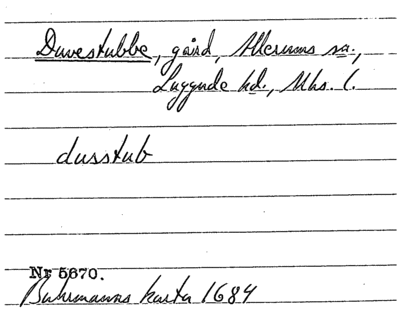 Duvestubbe, gård, Allerums sn.,
Luggude hd., Mhs. l.
dusstub
Nr 5670.
Buhrmanns karta 1684